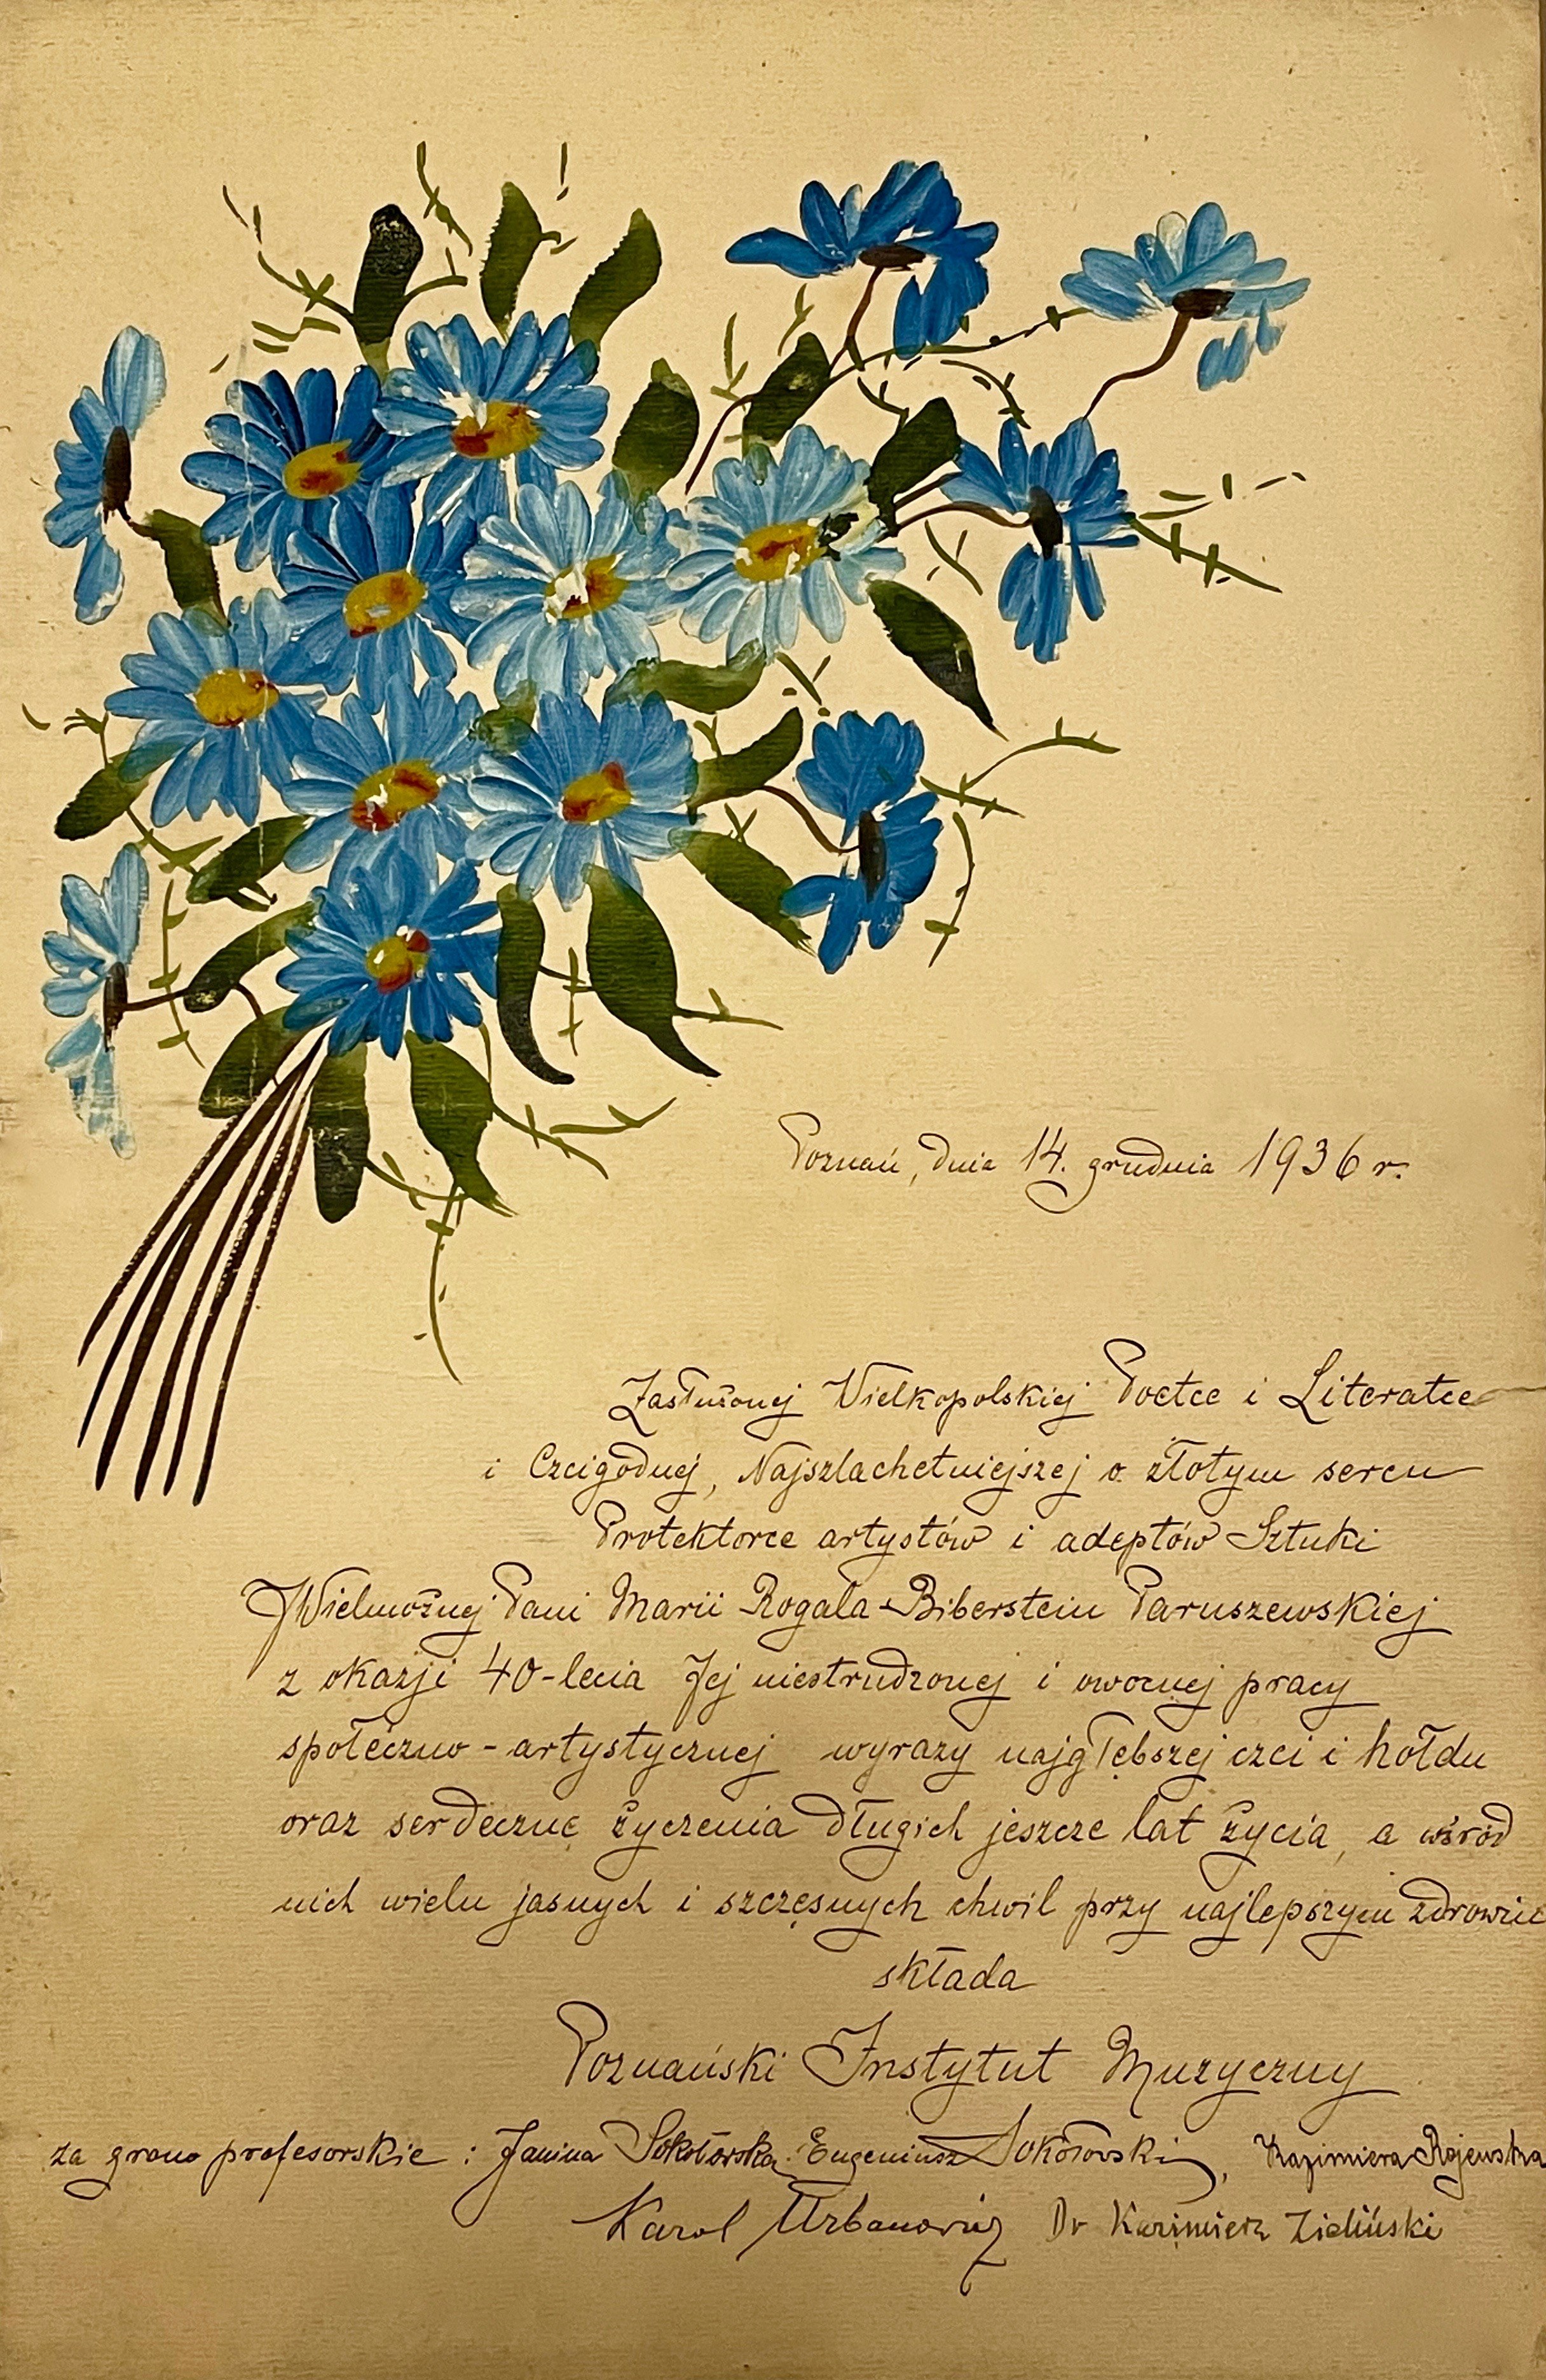 Poznań, dnia 14. grudnia 1936 r.
Zasłużonej Wielkopolskiej Poetce i Literatce
i Czcigodnej, Najszlachetniejszej o złotym sercu
Protektorce artystów i adeptów Sztuki
JWielmożnej Pani Marii Rogala-Biberstein Paruszewskiej
z okazji 40-lecia Jej niestrudzonej i owocnej pracy
społeczno-artystycznej wyrazy najgłębszej czci i hołdu
oraz serdeczne życzenia długich jeszcze lat życia, a wśród
nich wielu jasnych i szczęsnych chwil przy najlepszym zdrowiu
składa
Poznański Instytut Muzyczny
za grono profesorskie: Janina Sokołowska. Eugeniusz Sokołowski, Kazimiera Rojewska
Karol Urbanowicz Dr Kazimierz Zieliński